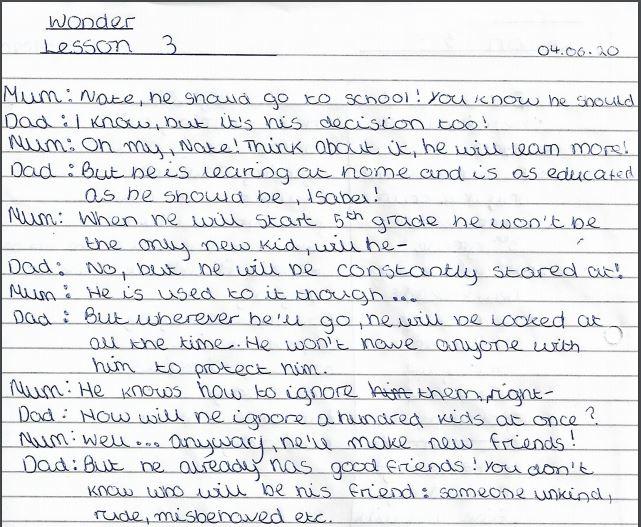 Wonder
Lesson 3
04.06.20
Mum: Nate, he should go to school! You know he should
Dad: I know, but it's his decision too!
Mum: Oh my, Nate! Think about it, he will learn more!
Dad: But he is learing at home and is as educated
as he should be, Isabel!
Mum: When he will start 5th grade he won't be
the only new kid, will he-
Dad: No, but he will be constantly stared at!
Mum: He is used to it though...
Dad: But wherever he'll go, he will be looked at
all the time. He won't have anyone with
him to protect him.
Mum: He knows how to ignore them, right-
Dad: How will he ignore a hundred kids at once?
Mum: Well... anyway, he'll make new friends!
Dad: But he already has good friends! You don't
know who will be his friend: someone unkind,
rude, misbehaved etc.